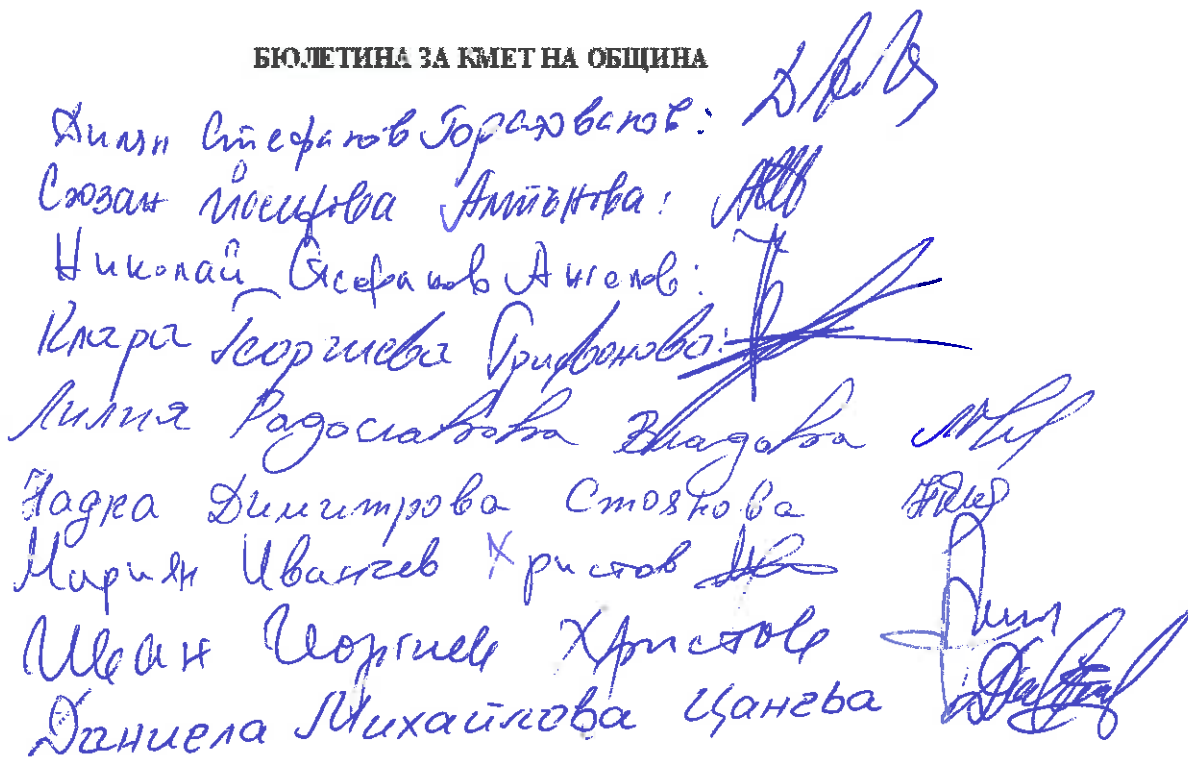 БЮЛЕТИНА ЗА КМЕТ НА ОБЩИНА
Дилян Стефанов :
Сюзан Йосифова Антънова:
Николай Стефанов Ангелов:
Клара Георгиева Трифонова:
Лилия Радославова Владова
Надка Димитрова Стоянова
Мариян Иванчев Христов
Иван Йоргиев Христов
Даниела Михайлова Цанева